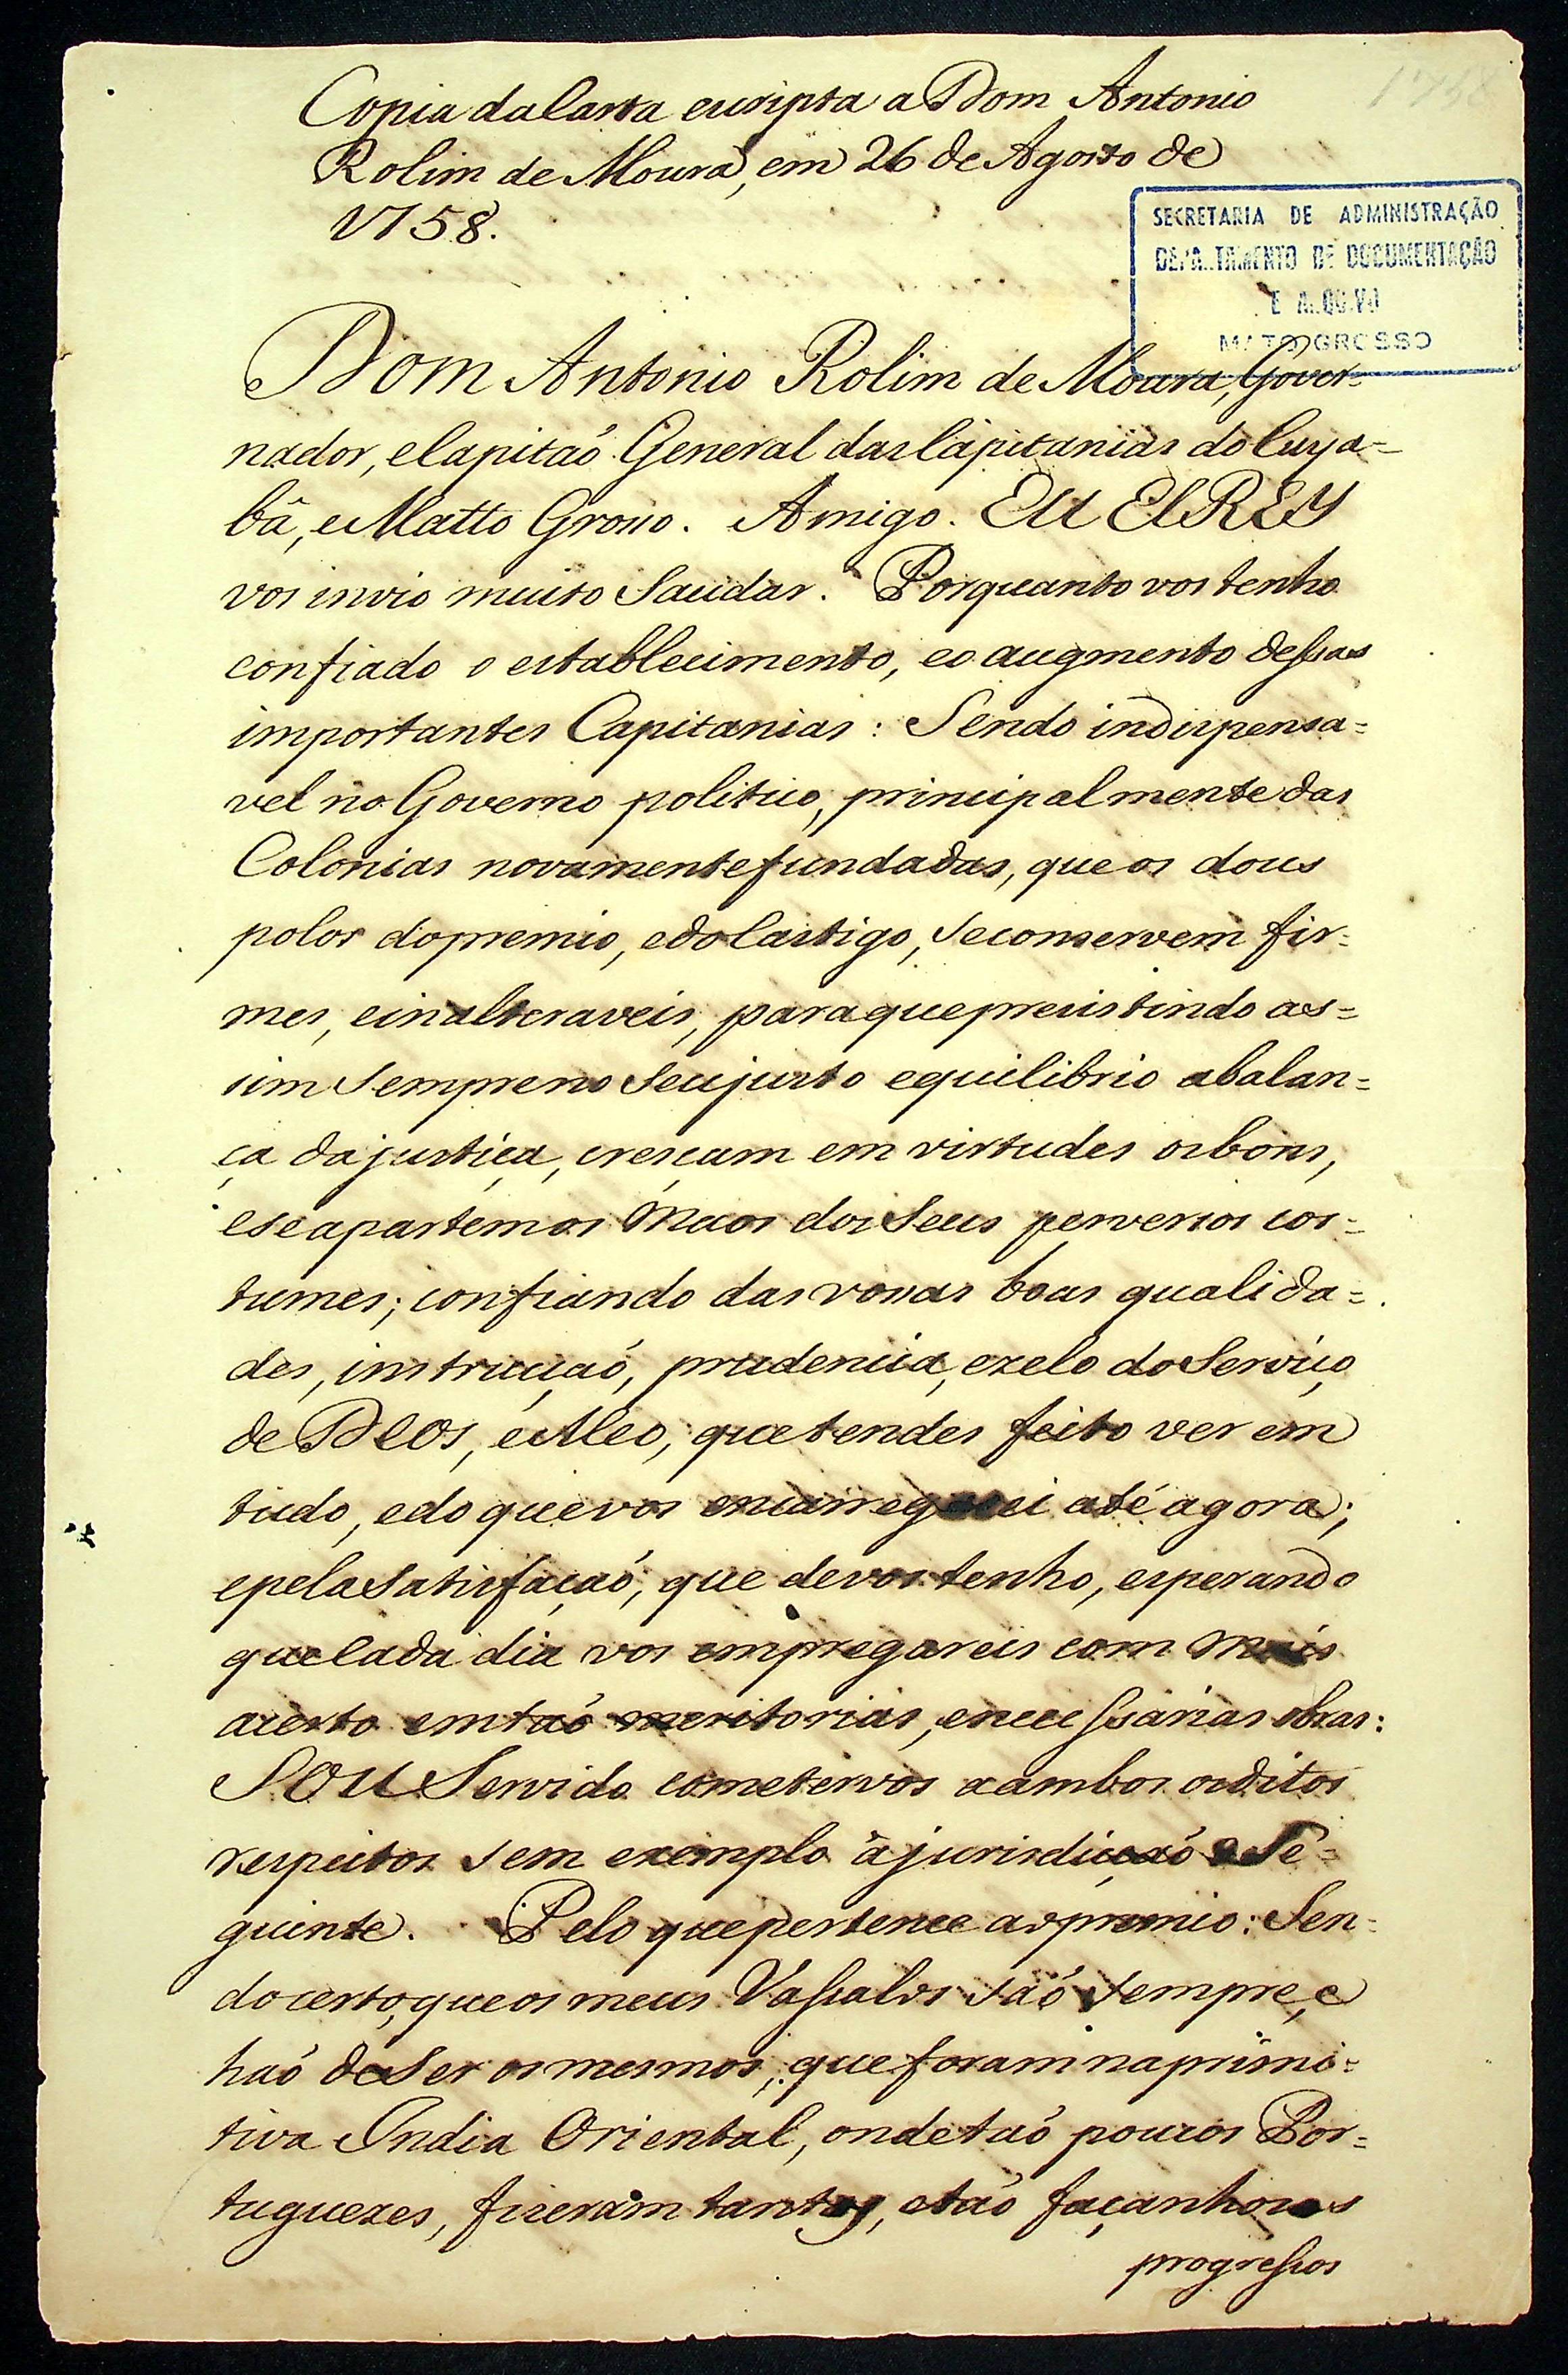 1758
Copia da Carta escripta a Dom Antonio
Rolim de Moura, em 26 de Agosto de
1758.
SECRETARIA DE ADMINISTRAÇÃO
DEPARTAMENTO DE DOCUMENTAÇÃO
E ARQUIVO
MATO GROSSO
Dom Antonio Rolim de Moura, Gover=
nador, e Capitaó General das Capitanias do Cuya=
bâ, e Matto Grosso. Amigo. EU ElREY
vos invio muito Saudar. Porquanto vos tenho
confiado o establecimento, e o augmento dessas
importantes Capitanias: Sendo indispensa=
vel no Governo politico, principalmente das
Colonias novamente fundadas, que os dous
polos do premio, e do Castigo, se conservem fir=
mes, e inalteraveis, para que prexistindo as=
sim sempre no seu justo equilibrio a balan=
ça da justiça, cresçam em virtudes os bons,
e se apartem os máos dos seus perversos cos=
tumes; confiando das vossas boas qualida=
des, instrucçaó, prudencia, e zelo do Serviço
de DEOS, e Meo, que tendes feito ver em
tudo, e do que vos encarreguei até agora;
e pela Satisfaçaó, que de vos tenho, esperando
que Cada dia vos empregareis com mais
acerto em taó meritorias, e necessarias obras:
SOU Servido cometervos a ambos os ditos
respeitos sem exemplo á jurisdicçaó Se=
guinte. Pelo que pertence ao premio: Sen=
do certo, que os meus Vassalos saó sempre, e
haó de Ser os mesmos, que foram na primi=
tiva India Oriental, onde taó poucos Por=
tuguezes, fizeram tantos, e taó façanhosos
progressos